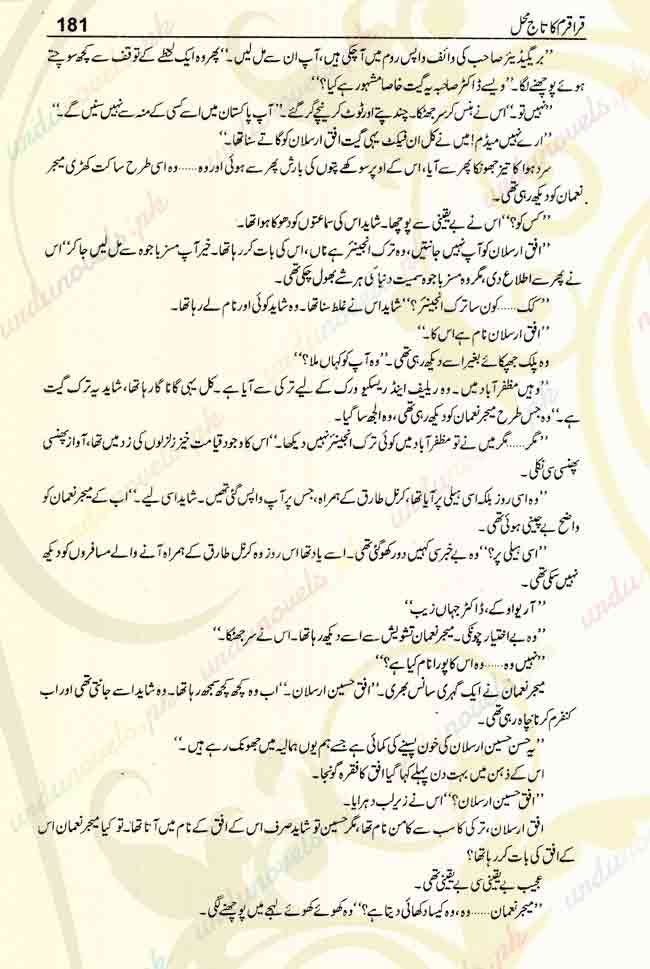 181
قراقرم کا تاج محل
’’بریگیڈیئر صاحب کی وائف واپس روم میں آ چکی ہیں، آپ ان سے مل لیں۔‘‘ پھر وہ ایک لحظے کے توقف سے کچھ سوچتے
ہوئے پوچھنے لگا۔ ’’ویسے ڈاکٹر صاحبہ یہ گیت خاصا مشہور ہے کیا؟‘‘
’’نہیں تو۔‘‘ اس نے ہنس کر سر جھٹکا۔ چند پتے اور ٹوٹ کر نیچے گر گئے۔ ’’آپ پاکستان میں اسے کسی کے منہ سے نہیں سنیں گے۔‘‘
’’ارے نہیں میڈم! میں نے کل ان فیکٹ یہی گیت افق ارسلان کو گاتے سنا تھا۔‘‘
سرد ہوا کا تیز جھونکا پھر سے آیا، اس کے اوپر سوکھے پتوں کی بارش پھر سے ہوئی اور وہ...... وہ اسی طرح ساکت کھڑی میجر
نعمان کو دیکھ رہی تھی۔
’’کس کو؟‘‘ اس نے بے یقینی سے پوچھا۔ شاید اس کی سماعتوں کو دھوکا ہوا تھا۔
’’افق ارسلان کو آپ نہیں جانتیں، وہ ترک انجینئر ہے ناں، اس کی بات کر رہا تھا۔ خیر آپ مسز باجوہ سے مل لیں جا کر‘‘ اس
نے پھر سے اطلاع دی، مگر وہ مسز باجوہ سمیت دنیا کی ہر شے بھول چکی تھی۔
’’کک...... کون سا ترک انجینئر؟‘‘ شاید اس نے غلط سنا تھا۔ وہ شاید کوئی اور نام لے رہا تھا۔
’’افق ارسلان نام ہے اس کا۔‘‘
وہ پلک جھپکائے بغیر اسے دیکھ رہی تھی۔ ’’وہ آپ کو کہاں ملا؟‘‘
’’وہیں مظفر آباد میں۔ وہ ریلیف اینڈ ریسکیو ورک کے لیے ترکی سے آیا ہے۔ کل یہی گانا گا رہا تھا، شاید یہ ترک گیت
ہے۔‘‘ وہ جس طرح میجر نعمان کو دیکھ رہی تھی، وہ الجھ سا گیا۔
’’مگر...... مگر میں نے تو مظفر آباد میں کوئی ترک انجینئر نہیں دیکھا۔‘‘ اس کا وجود قیامت خیز زلزلوں کی زد میں تھا، آواز پھنسی
پھنسی سی نکلی۔
’’وہ اسی روز بلکہ اسی ہیلی پر آیا تھا، کرنل طارق کے ہمراہ، جس پر آپ واپس گئی تھیں۔ شاید اسی لیے۔‘‘ اب کے میجر نعمان کو
واضح بے چینی ہوئی تھی۔
’’اسی ہیلی پر؟‘‘ وہ بے خبر سی کہیں دور کھو گئی تھی۔ اسے یاد تھا اس روز وہ کرنل طارق کے ہمراہ آنے والے مسافروں کو دیکھ
نہیں سکی تھی۔
’’آر یو اوکے، ڈاکٹر جہاں زیب‘‘
’’وہ بے اختیار چونکی۔ میجر نعمان تشویش سے اسے دیکھ رہا تھا۔ اس نے سر جھٹکا۔‘‘
’’نہیں وہ...... وہ اس کا پورا نام کیا ہے؟‘‘
میجر نعمان نے ایک گہری سانس بھری۔ ’’افق حسین ارسلان۔‘‘ اب وہ کچھ کچھ سمجھ رہا تھا۔ وہ شاید اسے جانتی تھی اور اب
کنفرم کرنا چاہ رہی تھی۔
’’یہ حسن حسین ارسلان کی خون پسینے کی کمائی ہے جسے ہم یوں ہمالیہ میں جھونک رہے ہیں۔‘‘
اس کے ذہن میں بہت دن پہلے کہا گیا افق کا فقرہ گونجا۔
’’افق حسین ارسلان؟‘‘ اس نے زیر لب دہرایا۔
افق ارسلان، ترکی کا سب سے کامن نام تھا، مگر حسین تو شاید صرف اس کے افق کے نام میں آتا تھا۔ تو کیا میجر نعمان اس
کے افق کی بات کر رہا تھا؟
عجیب بے یقینی سی بے یقینی تھی۔
’’میجر نعمان...... وہ، وہ کیسا دکھائی دیتا ہے؟‘‘ وہ کھوئے کھوئے لہجے میں پوچھنے لگی۔